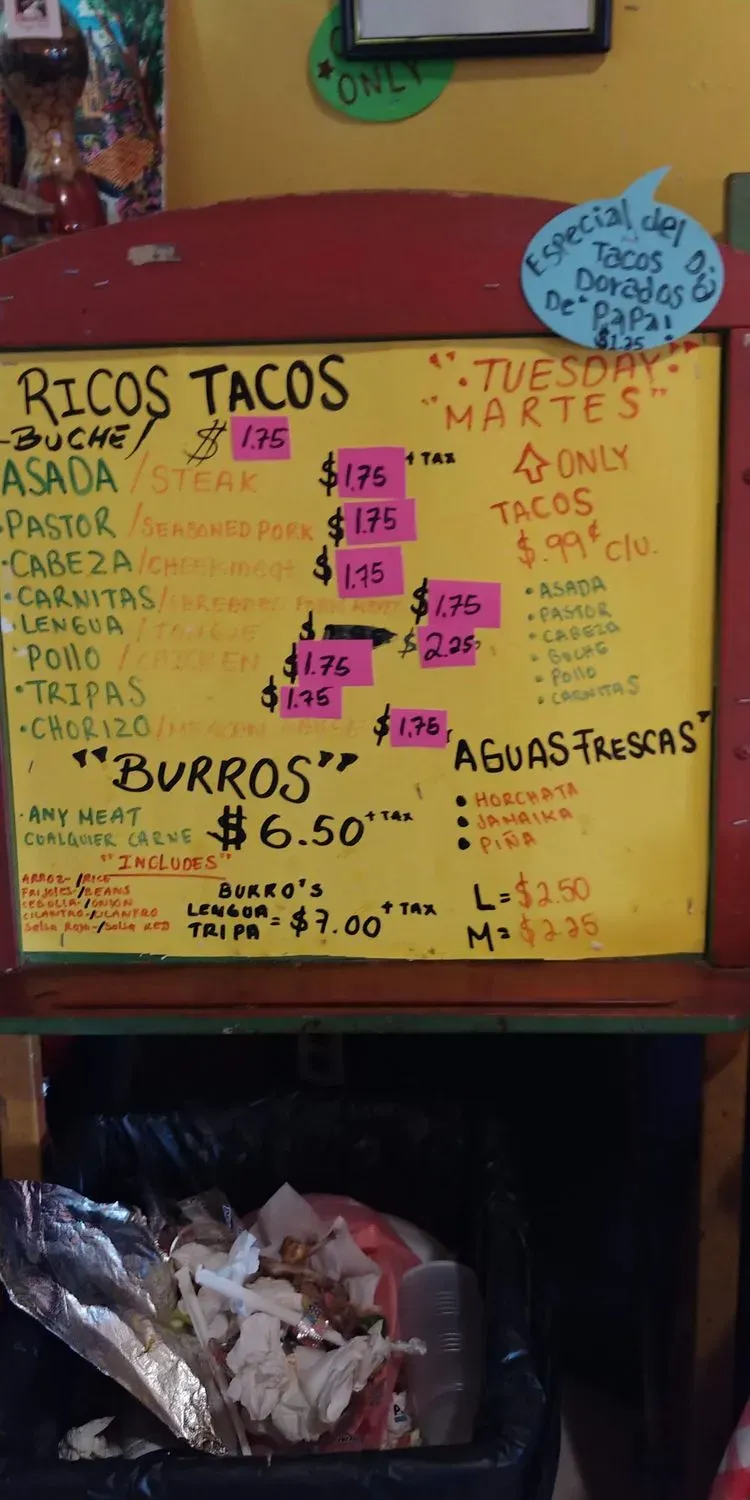 ONLY
Especial del Día
Tacos
Dorados
De PaPa!
$1.25
RICOS TACOS
-BUCHE/ $ 1.75
ASADA /STEAK $1.75 + TAX
•PASTOR /SEASONED PORK $1.75
•CABEZA/CHEEK meat $1.75
•CARNITAS/SHREDDED $1.75
•LENGUA /TONGUE $ $2.25
POllO /CHICKEN $1.75
•TRIPAS $1.75
•CHORIZO/MEXICAN $1.75
"BURROS"
•ANY MEAT
CUALQUIER CARNE $6.50 + TAX
"INCLUDES"
ARROZ-/RICE
FRIJOLES-/BEANS
CEBOLLA-/ONION
CILANTRO-/CILANTRO
Salsa Roja-/Salsa RED
BURRO'S
LENGUA
TRIPA = $7.00 + TAX
"•TUESDAY•"
"MARTES"
ONLY
TACOS
$.99¢ c/u.
•ASADA
•PASTOR
•CABEZA
•BUCHE
•Pollo
•CARNITAS
AGUAS FRESCAS"
•HORCHATA
•JAMAIKA
•PIÑA
L=$2.50
M=$2.25